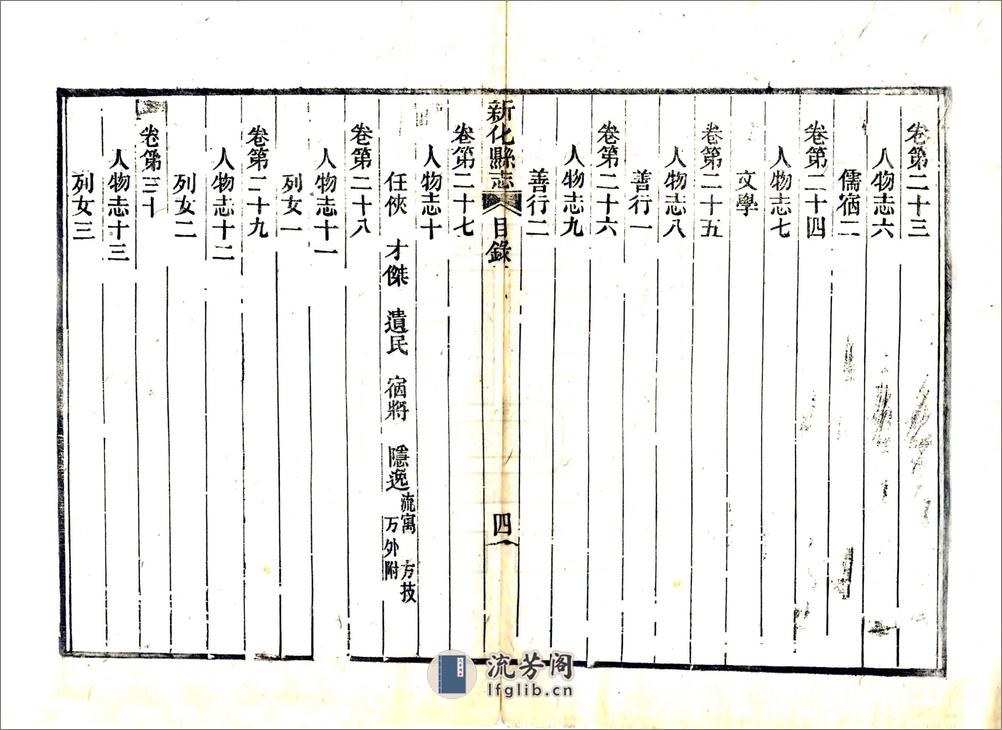 卷第二十三
人物志六
儒宿二
卷第二十四
人物志七
文學
卷第二十五
人物志八
善行一
卷第二十六
人物志九
善行二
新化縣志 目錄 四
卷第二十七
人物志十
任俠 才傑 遺民 宿將 隱逸 流寓 方技 方外附
卷第二十八
人物志十一
列女一
卷第二十九
人物志十二
列女二
卷第三十
人物志十三
列女三
流芳阁
lfglib.cn